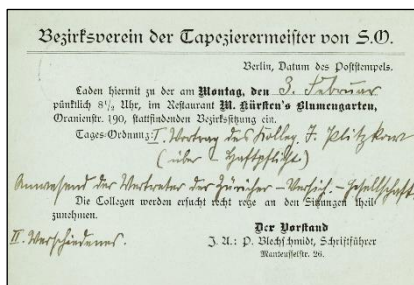 Bezirksverein der Tapezierermeister von S.O.
Berlin, Datum des Poststempels.
Laden hiermit zu der am Montag, den 3. Februar
pünktlich 8½ Uhr, im Restaurant M. Kürsten's Blumengarten,
Oranienstr. 190, stattfindenden Bezirkssitzung ein.
Tages-Ordnung: I. Vortrag des Kolleg. F. Plitzkow
(über – Haftpflicht)
Anwesend der Vertreter der Züricher – Versich. – Gesellschaft
Die Collegen werden ersucht recht rege an den Sitzungen theil
zunehmen.
II. Verschiedenes.
Der Vorstand
J. A.: P. Blechschmidt, Schriftführer
Manteuffelstr. 26.